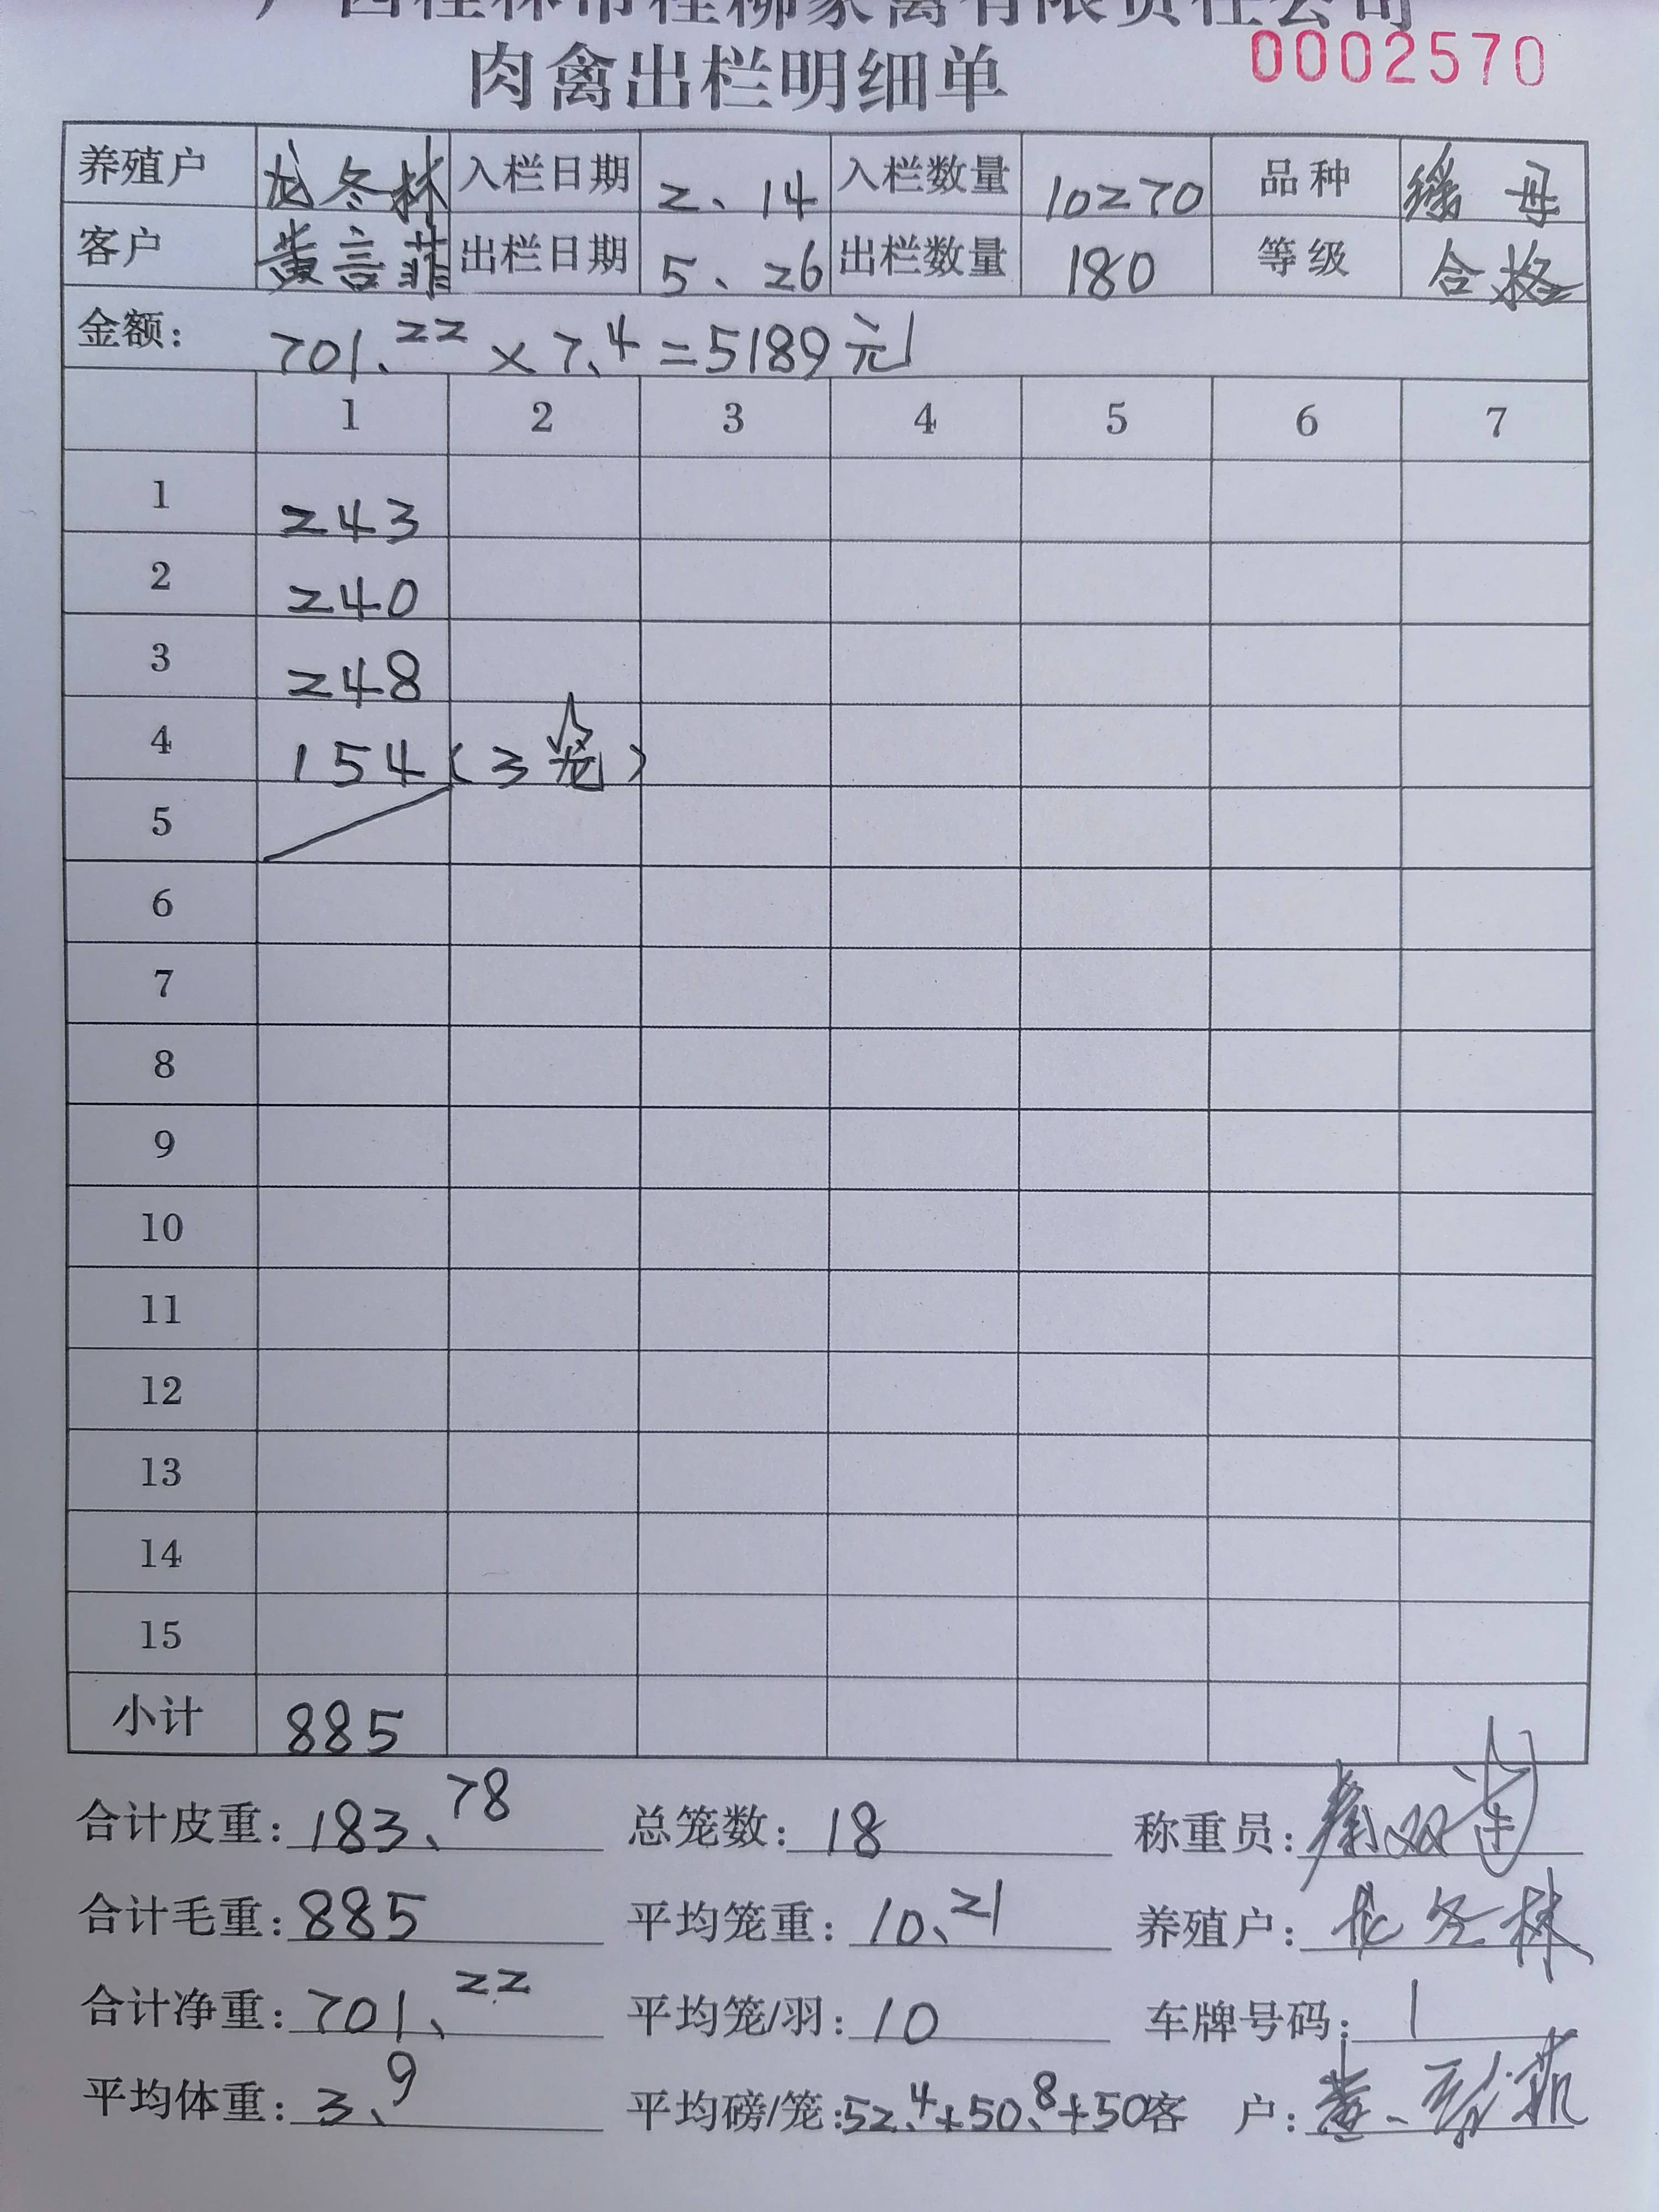 广西桂林市桂柳家禽有限责任公司
肉禽出栏明细单 0002570
养殖户 龙冬林 入栏日期 2、14 入栏数量 10270 品种 母
客户 黄言菲 出栏日期 5、26 出栏数量 180 等级 合格
金额: 701.22 × 7.4 = 5189元
1 2 3 4 5 6 7
1 243
2 240
3 248
4 154 (3笼)
5
6
7
8
9
10
11
12
13
14
15
小计 885
合计皮重: 183、78 总笼数: 18 称重员:
合计毛重: 885 平均笼重: 10、21 养殖户: 龙冬林
合计净重: 701、22 平均笼/羽: 10 车牌号码: 1
平均体重: 3、9 平均磅/笼: 52.4+50.8+50 客 户: 黄